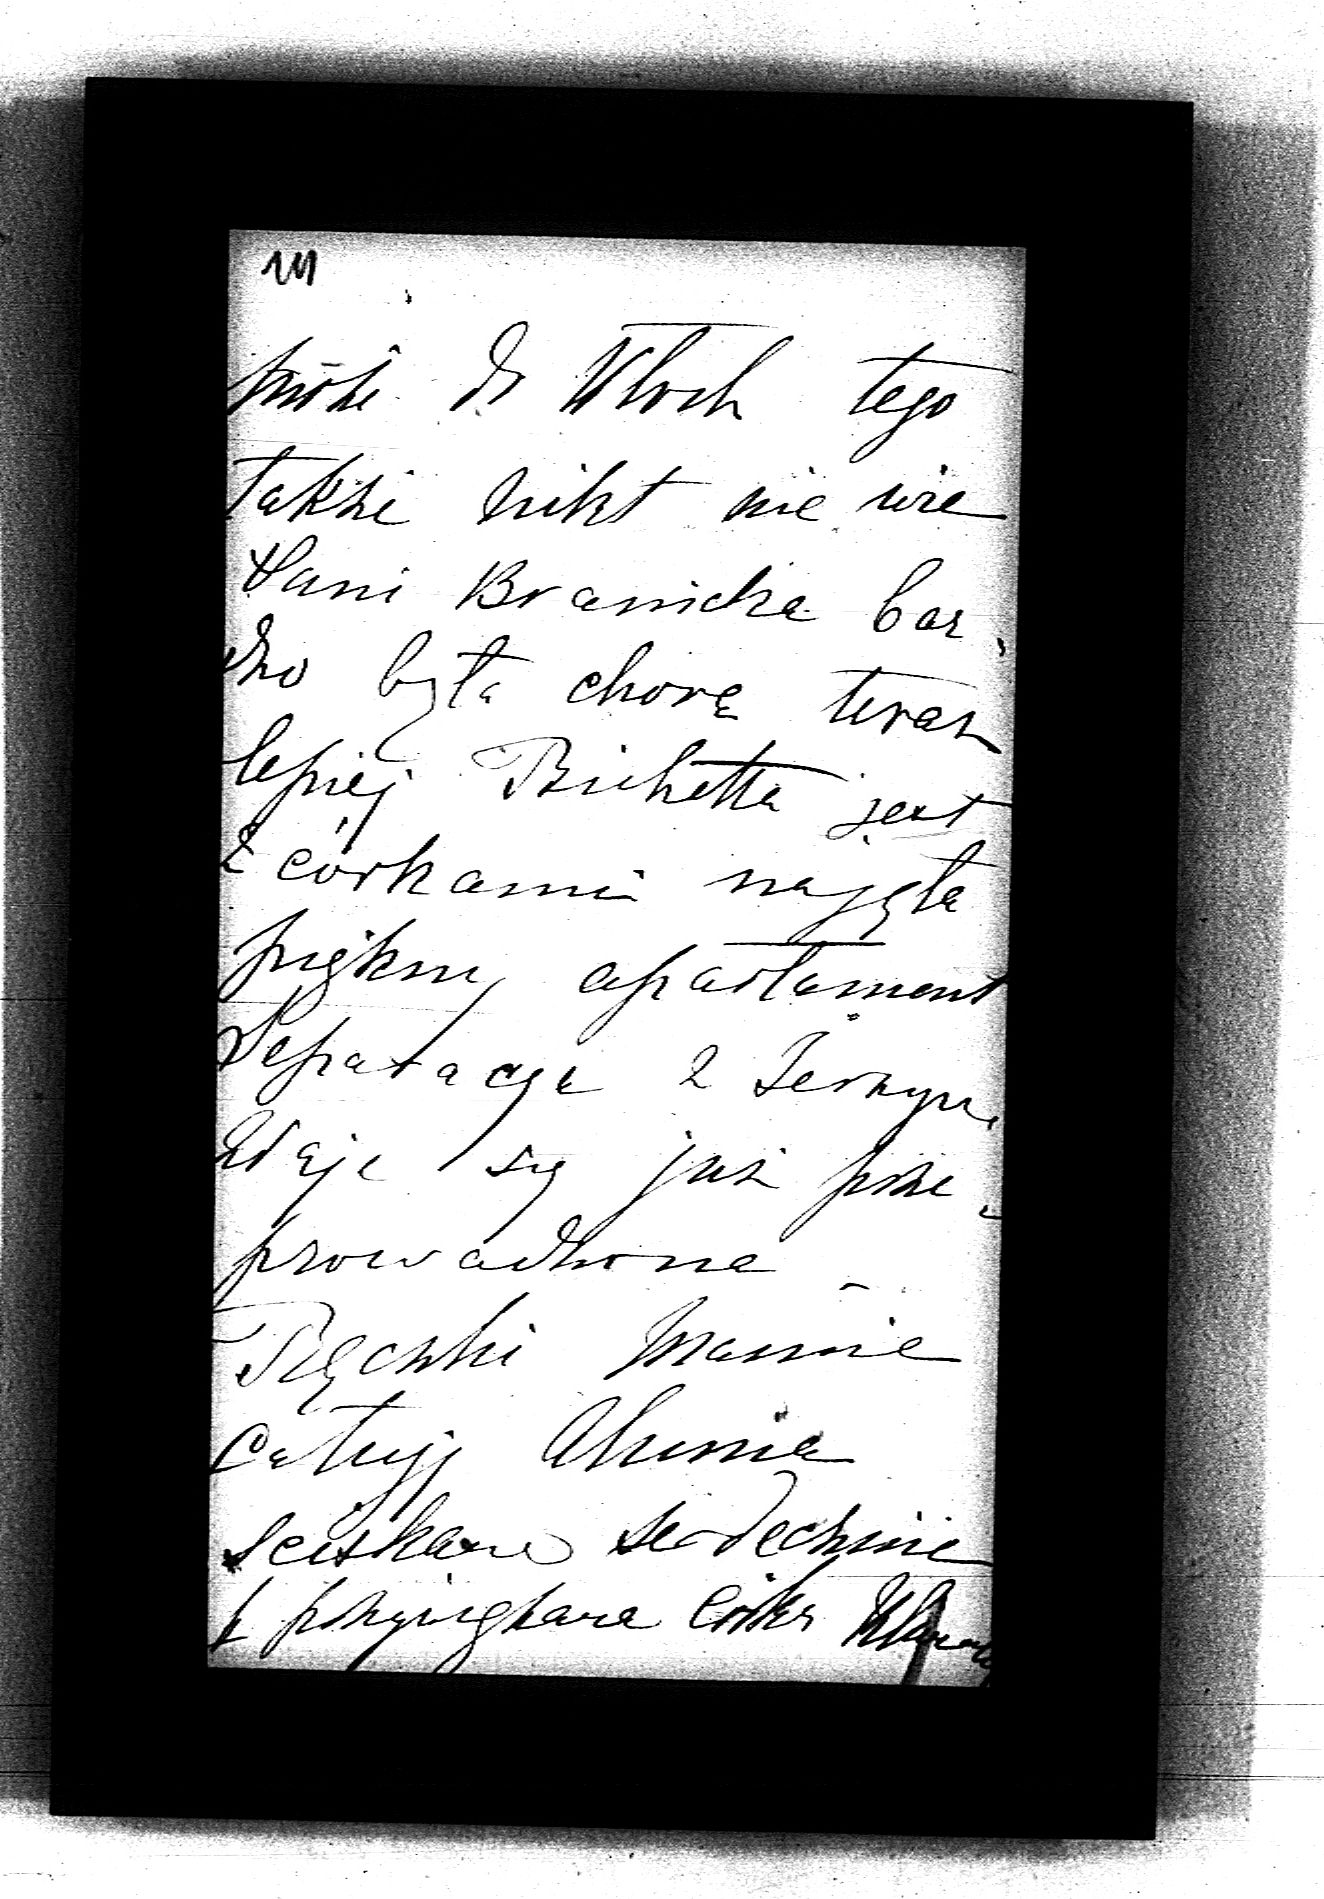 może do Włoch tego
także nikt nie wie
Pani Branicka bar
dzo była chora teraz
lepiej Bichetta jest
z córkami najęła
piękny apartament
Separacya z Jerzym
zdaje się już prze
prowadzona
Rączki Mamie
całuję
ściskam serdecznie
przywiązana córka